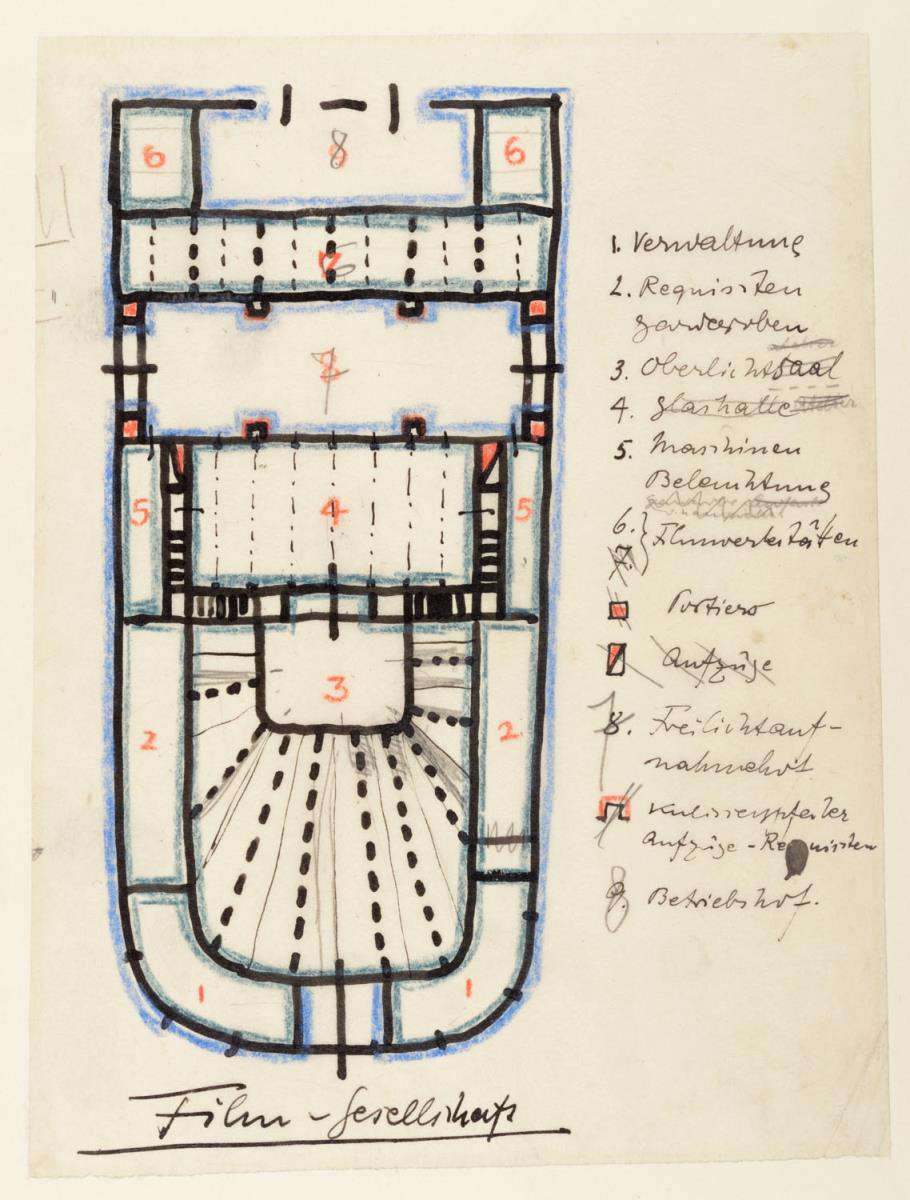 6
8
6
7
6
8
7
5
4
5
3
2
2
1
1
1. Verwaltung
2. Requisiten
garderoben
3. Oberlichtsaal
4. Glashalle Atelier
5. Maschinen
Beleuchtung
6.
7. } Filmwerkstätten
Portiers
Aufzüge
8. Freilichtauf-
7
nahmehof
Kulissenpfeiler
Aufzüge - Requisiten
9. Betriebshof.
8
Film - Gesellschaft